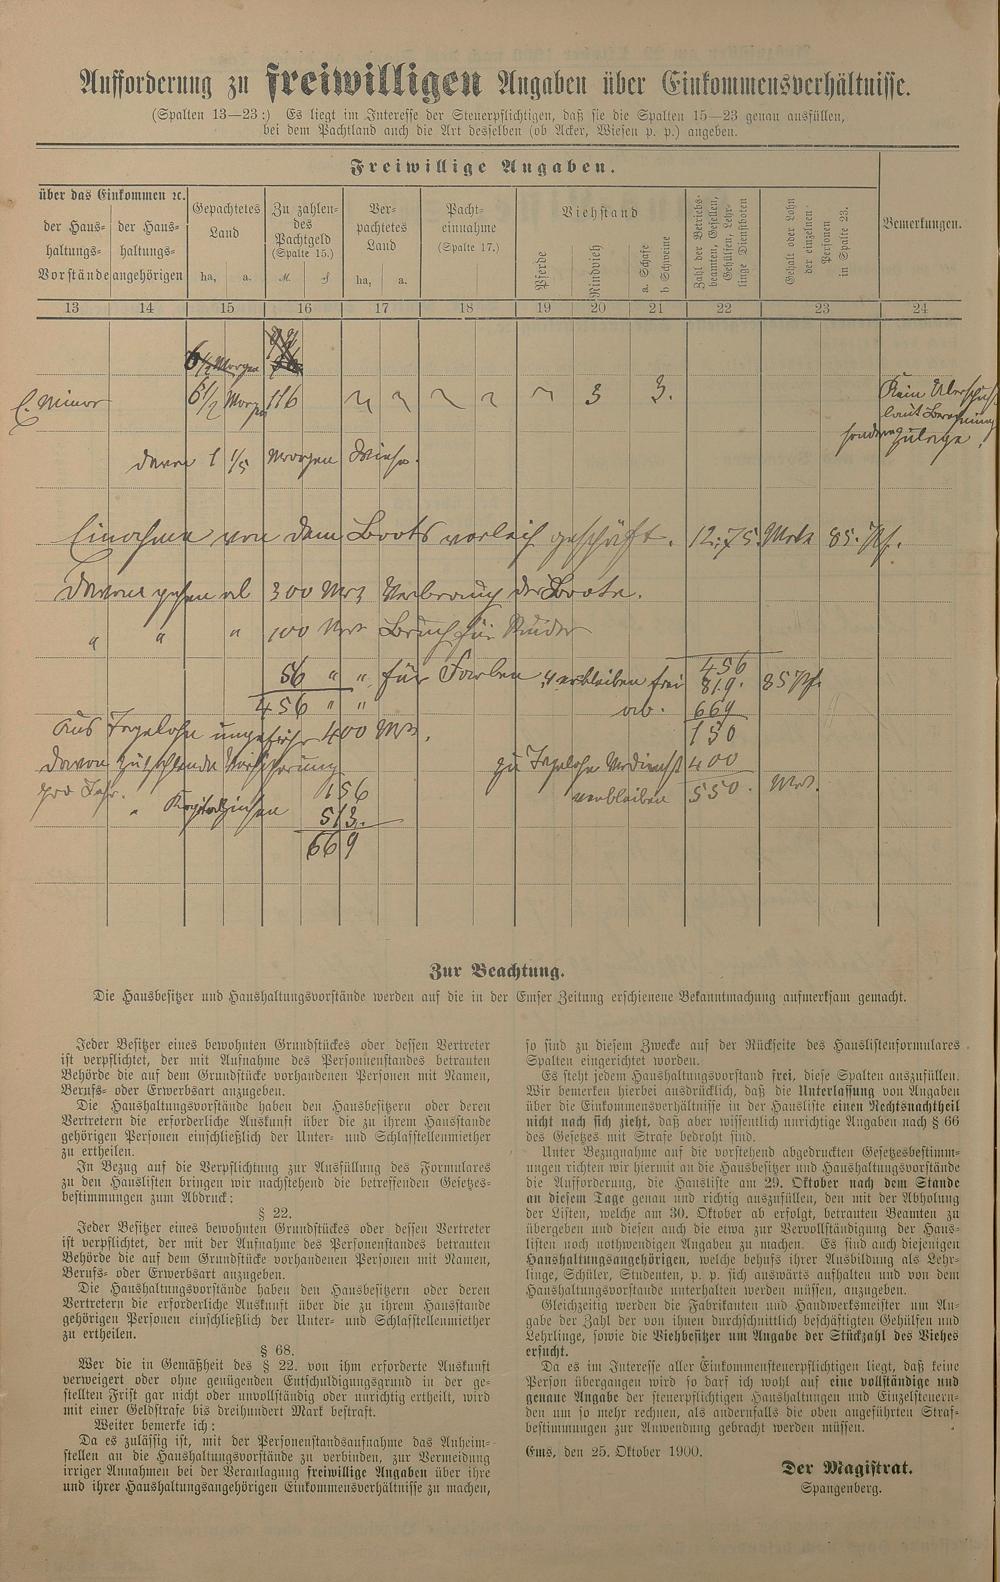 Aufforderung zu freiwilligen Angaben über Einkommensverhältnisse.
(Spalten 13—23:) Es liegt im Interesse der Steuerpflichtigen, daß sie die Spalten 15—23 genau ausfüllen,
bei dem Pachtland auch die Art desselben (ob Acker, Wiesen p. p.) angeben.
Freiwillige Angaben.
über das Einkommen ꝛc.
der Haushaltungs-Vorstände
der Haushaltungsangehörigen
Gepachtetes Land
ha, a.
Zu zahlendes Pachtgeld
(Spalte 15.)
M. ₰
Verpachtetes Land
ha, a.
Pachteinnahme
(Spalte 17.)
Viehstand
Pferde
Rindvieh
a. Schafe
b Schweine
Zahl der Betriebsbeamten, Gesellen, Gehülfen, Lehrlinge Dienstboten
Gehalt oder Lohn der einzelnen Personen in Spalte 23.
Bemerkungen.
13 14 15 16 17 18 19 20 21 22 23 24
6 1/2 Morgen
6 1/2 Morgen 116 3 3. Kein Überschuß
laut Berechnung
sondern Zulage.
davon 1 1/5 Morgen Wiese.
Einahme von dem Boots verleih geschäft. 12,75 Mark 85. Pf.
Davon gehen ab 300 Mrk Verbrauch der Boote.
" " " 100 Mrk Bruch für Ruder
56 " " für Farben verbleiben frei
456
819. 85 Pf.
456 " "
ab. 669
150
Aus Tagelohn ungefähr 400 Mrk.
davon zu zahlende Versicherung
pro Jahr. 156
zu Tagelohn Verdienst 400
verbleiben 550. Mrk.
" Kapitalzinsen 513.
669
Zur Beachtung.
Die Hausbesitzer und Haushaltungsvorstände werden auf die in der Emser Zeitung erschienene Bekanntmachung aufmerksam gemacht.
Jeder Besitzer eines bewohnten Grundstückes oder dessen Vertreter
ist verpflichtet, der mit Aufnahme des Personenstandes betrauten
Behörde die auf dem Grundstücke vorhandenen Personen mit Namen,
Berufs- oder Erwerbsart anzugeben.
Die Haushaltungsvorstände haben den Hausbesitzern oder deren
Vertretern die erforderliche Auskunft über die zu ihrem Hausstande
gehörigen Personen einschließlich der Unter- und Schlafstellenmiether
zu ertheilen.
In Bezug auf die Verpflichtung zur Ausfüllung des Formulares
zu den Hauslisten bringen wir nachstehend die betreffenden Gesetzes-
bestimmungen zum Abdruck:
§ 22.
Jeder Besitzer eines bewohnten Grundstückes oder dessen Vertreter
ist verpflichtet, der mit der Aufnahme des Personenstandes betrauten
Behörde die auf dem Grundstücke vorhandenen Personen mit Namen,
Berufs- oder Erwerbsart anzugeben.
Die Haushaltungsvorstände haben den Hausbesitzern oder deren
Vertretern die erforderliche Auskunft über die zu ihrem Hausstande
gehörigen Personen einschließlich der Unter- und Schlafstellenmiether
zu ertheilen.
§ 68.
Wer die in Gemäßheit des § 22. von ihm erforderte Auskunft
verweigert oder ohne genügenden Entschuldigungsgrund in der ge-
stellten Frist gar nicht oder unvollständig oder unrichtig ertheilt, wird
mit einer Geldstrafe bis dreihundert Mark bestraft.
Weiter bemerke ich:
Da es zulässig ist, mit der Personenstandsaufnahme das Anheim-
stellen an die Haushaltungsvorstände zu verbinden, zur Vermeidung
irriger Annahmen bei der Veranlagung freiwillige Angaben über ihre
und ihrer Haushaltungsangehörigen Einkommensverhältnisse zu machen,
so sind zu diesem Zwecke auf der Rückseite des Hauslistenformulares
Spalten eingerichtet worden.
Es steht jedem Haushaltungsvorstand frei, diese Spalten auszufüllen.
Wir bemerken hierbei ausdrücklich, daß die Unterlassung von Angaben
über die Einkommensverhältnisse in der Hausliste einen Rechtsnachtheil
nicht nach sich zieht, daß aber wissentlich unrichtige Angaben nach § 66
des Gesetzes mit Strafe bedroht sind.
Unter Bezugnahme auf die vorstehend abgedruckten Gesetzesbestimm-
ungen richten wir hiermit an die Hausbesitzer und Haushaltungsvorstände
die Aufforderung, die Hausliste am 29. Oktober nach dem Stande
an diesem Tage genau und richtig auszufüllen, den mit der Abholung
der Listen, welche am 30. Oktober ab erfolgt, betrauten Beamten zu
übergeben und diesen auch die etwa zur Vervollständigung der Haus-
listen noch nothwendigen Angaben zu machen. Es sind auch diejenigen
Haushaltungsangehörigen, welche behufs ihrer Ausbildung als Lehr-
linge, Schüler, Studenten, p. p. sich auswärts aufhalten und von dem
Haushaltungsvorstande unterhalten werden müssen, anzugeben.
Gleichzeitig werden die Fabrikanten und Handwerksmeister um An-
gabe der Zahl der von ihnen durchschnittlich beschäftigten Gehülfen und
Lehrlinge, sowie die Viehbesitzer um Angabe der Stückzahl des Viehes
ersucht.
Da es im Interesse aller Einkommensteuerpflichtigen liegt, daß keine
Person übergangen wird so darf ich wohl auf eine vollständige und
genaue Angabe der steuerpflichtigen Haushaltungen und Einzelsteuern-
den um so mehr rechnen, als andernfalls die oben angeführten Straf-
bestimmungen zur Anwendung gebracht werden müssen.
Ems, den 25. Oktober 1900.
Der Magistrat.
Spangenberg.